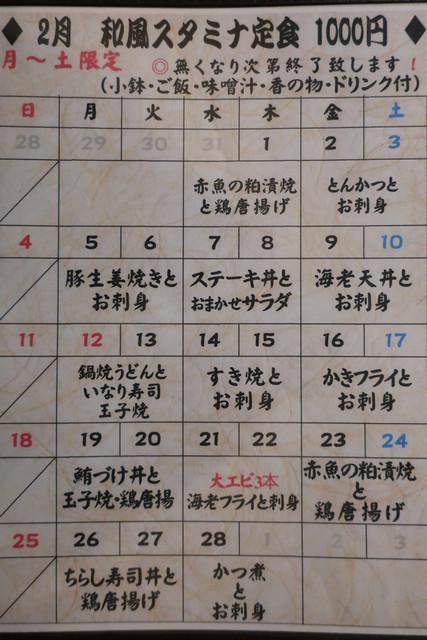 ◆ 2月 和風スタミナ定食 1000円 ◆
月～土限定 ◎無くなり次第終了致します！
(小鉢・ご飯・味噌汁・香の物・ドリンク付)
日 月 火 水 木 金 土
28 29 30 31 1 2 3
赤魚の粕漬焼 とんかつと
と鶏唐揚げ お刺身
4 5 6 7 8 9 10
豚生姜焼きと ステーキ丼と 海老天丼と
お刺身 おまかせサラダ お刺身
11 12 13 14 15 16 17
鍋焼うどんと すき焼と かきフライと
いなり寿司 お刺身 お刺身
玉子焼
18 19 20 21 22 23 24
鮪づけ丼と 大エビ3本 赤魚の粕漬焼
玉子焼・鶏唐揚 海老フライと刺身 と
鶏唐揚げ
25 26 27 28 1 2 3
ちらし寿司丼と かつ煮
鶏唐揚げ と
お刺身